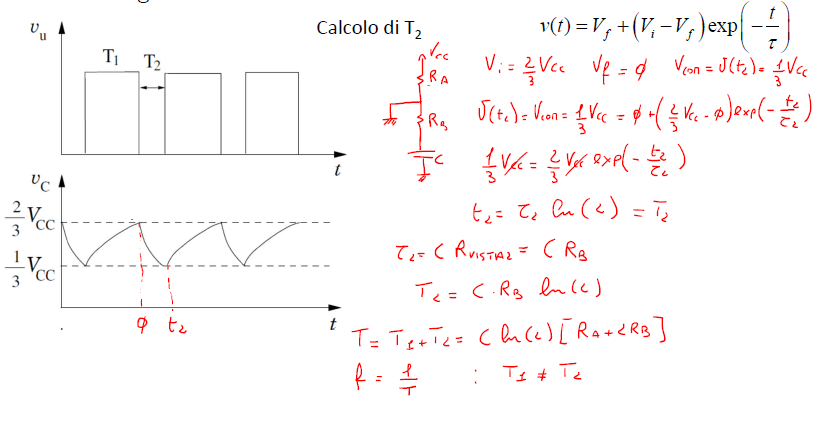 Calcolo di T₂
v(t) = V_f + (V_i − V_f) exp(− t/τ)
v_u
T₁ T₂
t
v_C
2/3 V_CC
1/3 V_CC
t
ϕ t₂
V_CC
R_A
R_B
C
V_i = 2/3 V_CC V_f = ϕ V_con = v(t₂) = 1/3 V_CC
v(t₂) = V_con = 1/3 V_CC = ϕ + (2/3 V_CC - ϕ) exp(- t₂/τ₂)
1/3 V_CC = 2/3 V_CC exp(- t₂/τ₂)
t₂ = τ₂ ln(2) = T₂
τ₂ = C R_VISTA2 = C R_B
T₂ = C · R_B ln(2)
T = T₁ + T₂ = C ln(2) [R_A + 2R_B]
f = 1/T : T₁ ≠ T₂